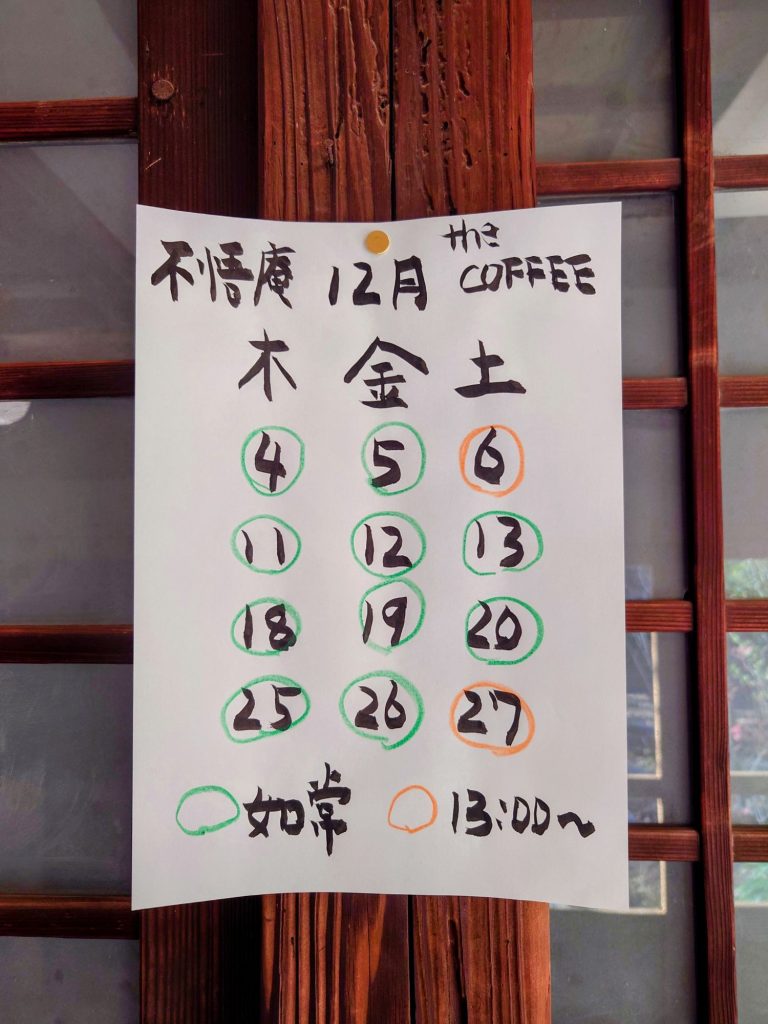 不悟庵 12月 the COFFEE
木 金 土
4 5 6
11 12 13
18 19 20
25 26 27
○如常 ○13:00〜